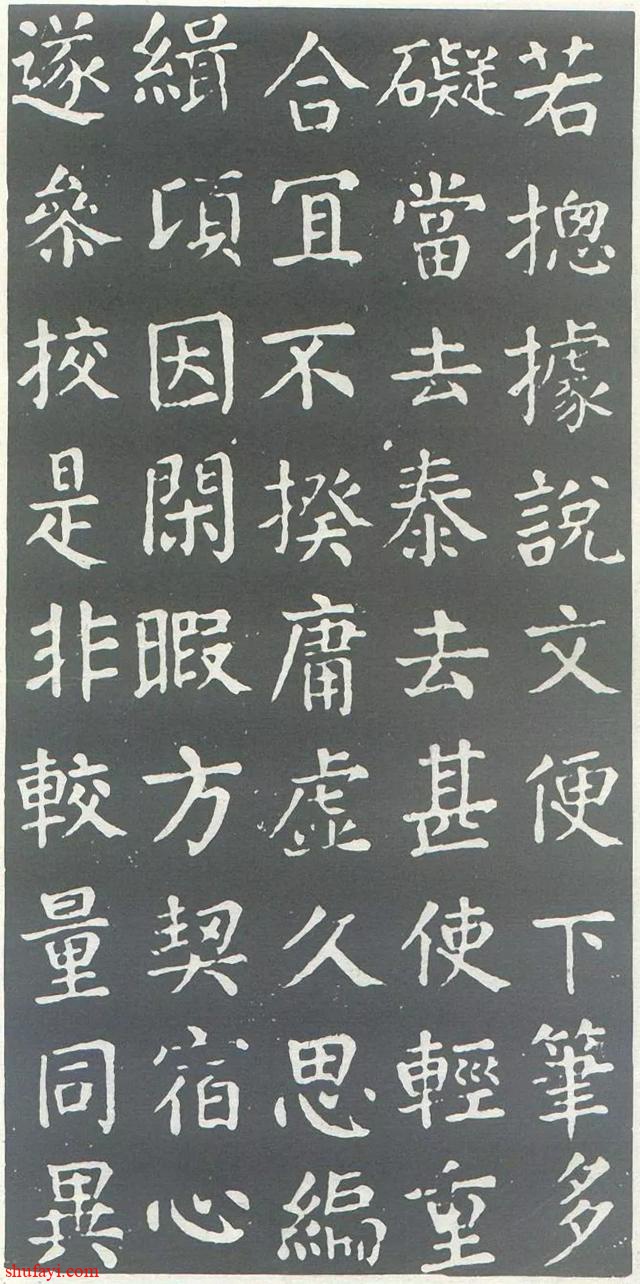 若揔據說文便下筆多
礙當去泰去甚使輕重
合宜不揆庸虛久思編
緝頃因閑暇方契宿心
遂叅挍是非較量同異
shufayi.com